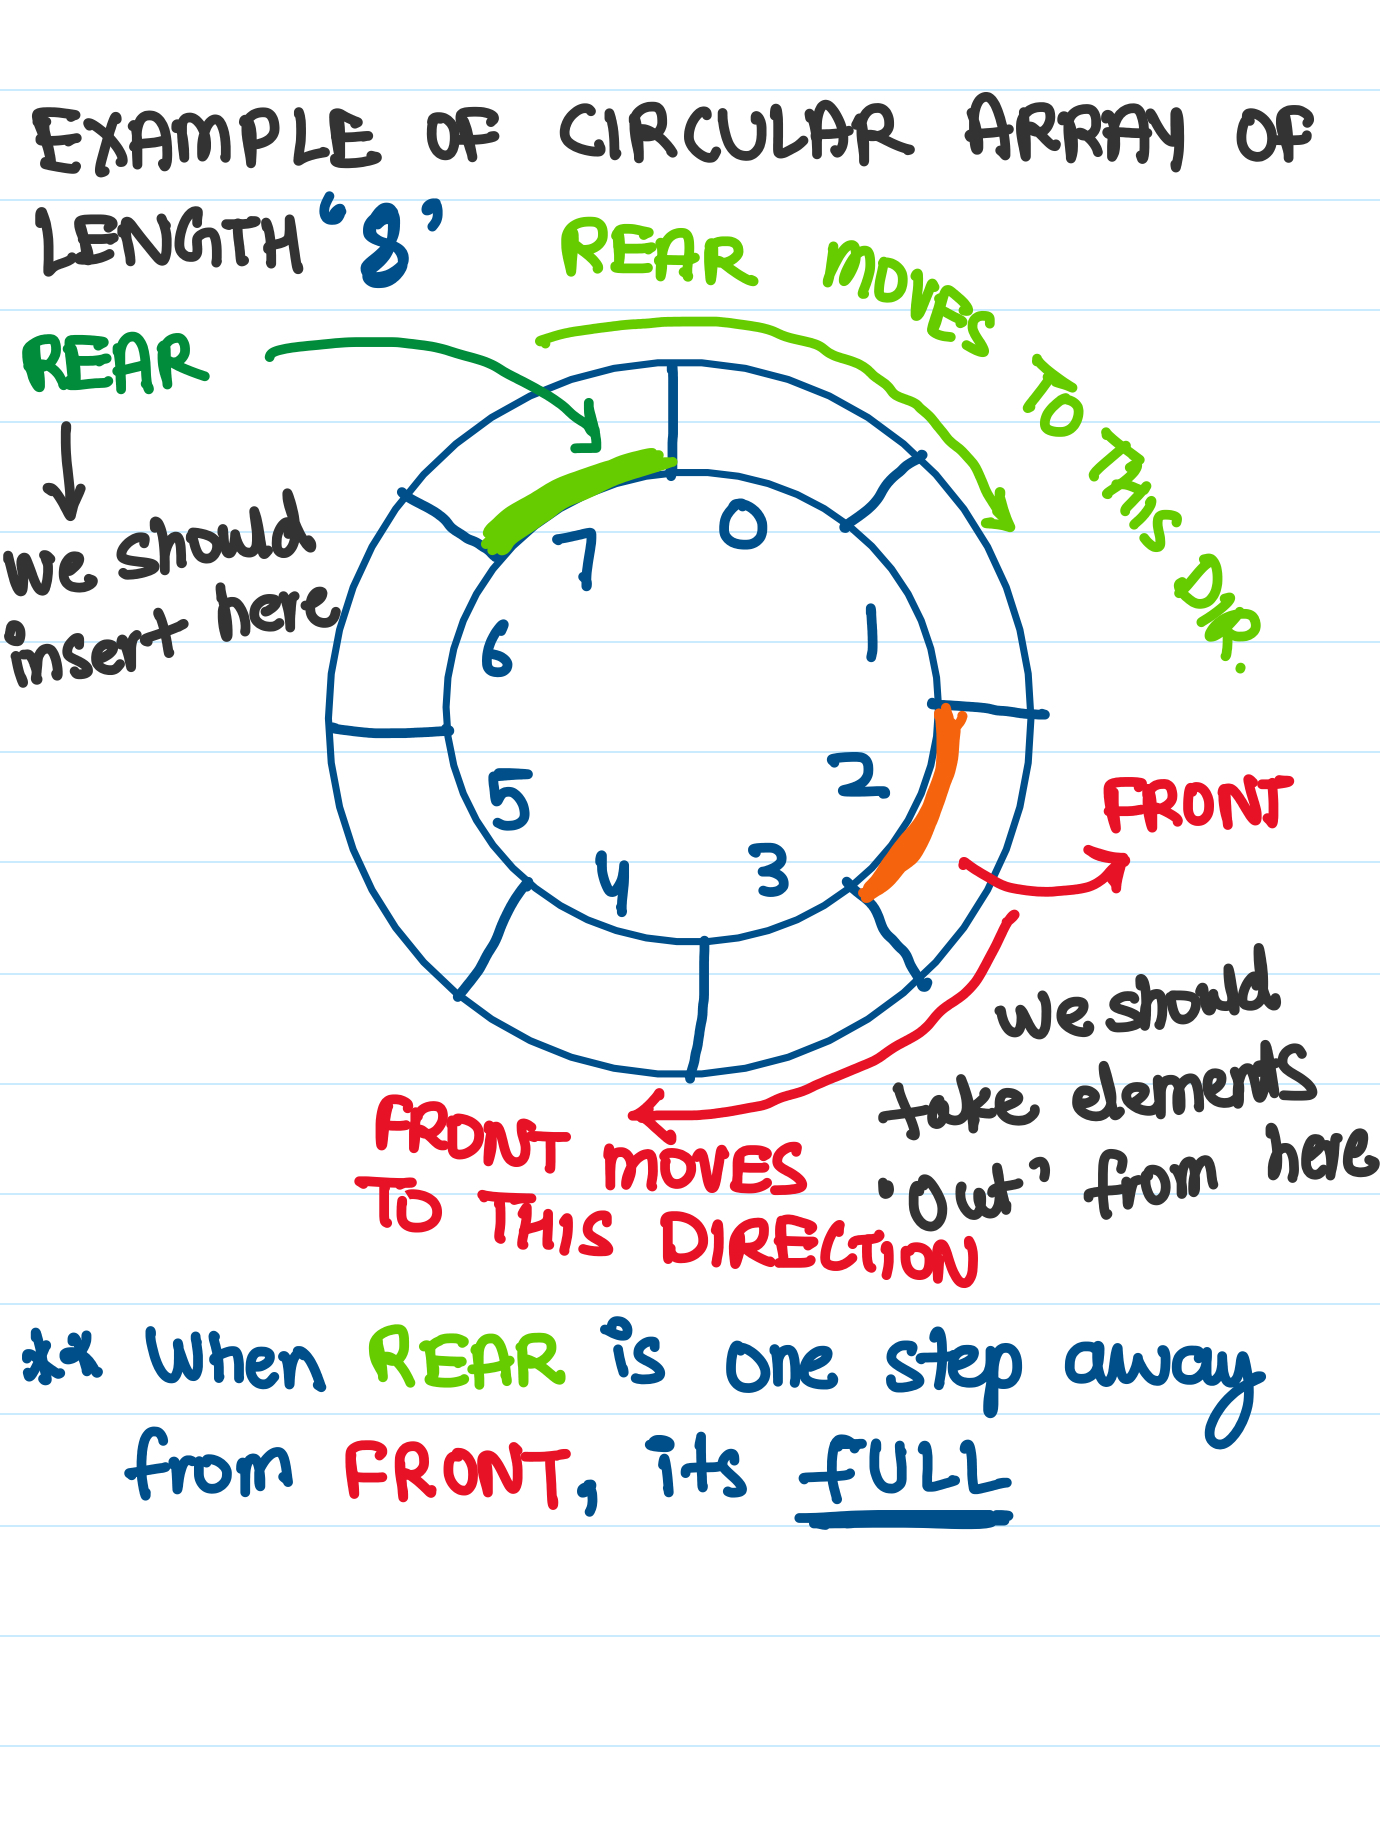 EXAMPLE OF CIRCULAR ARRAY OF
LENGTH "8"
REAR MOVES TO THIS DIR.
REAR
we should
insert here
0
1
2
3
4
5
6
7
FRONT
we should
take elements
"out" from here
FRONT MOVES
TO THIS DIRECTION
** When REAR is one step away
from FRONT, its FULL